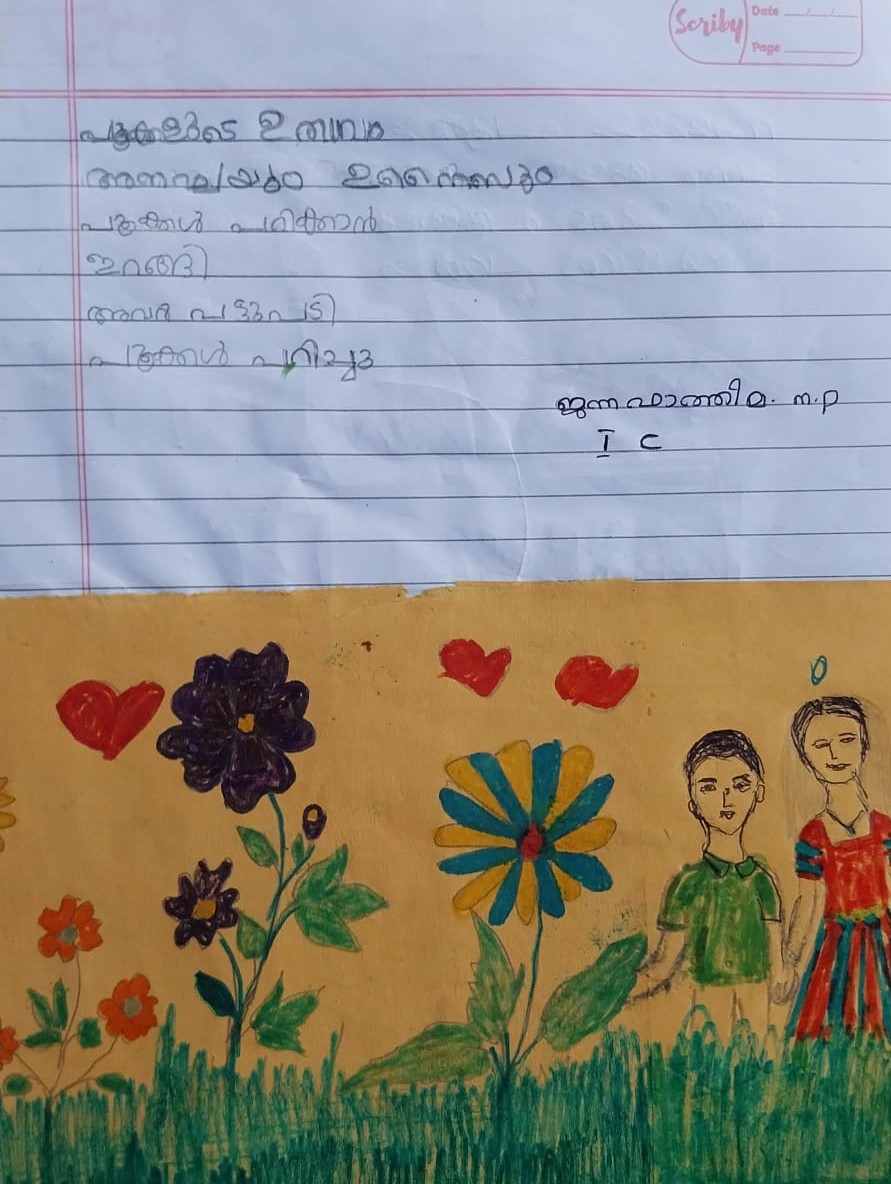 Scriby
Date
Page
പൂക്കളുടെ ഉത്സവം
അമ്മുവും
പൂക്കൾ പറിക്കാൻ
ഇറങ്ങി
അവർ പാട്ടുപാടി
പൂക്കൾ പറിച്ചു
ജന്ന ഫാത്തിമ. n.p
I C